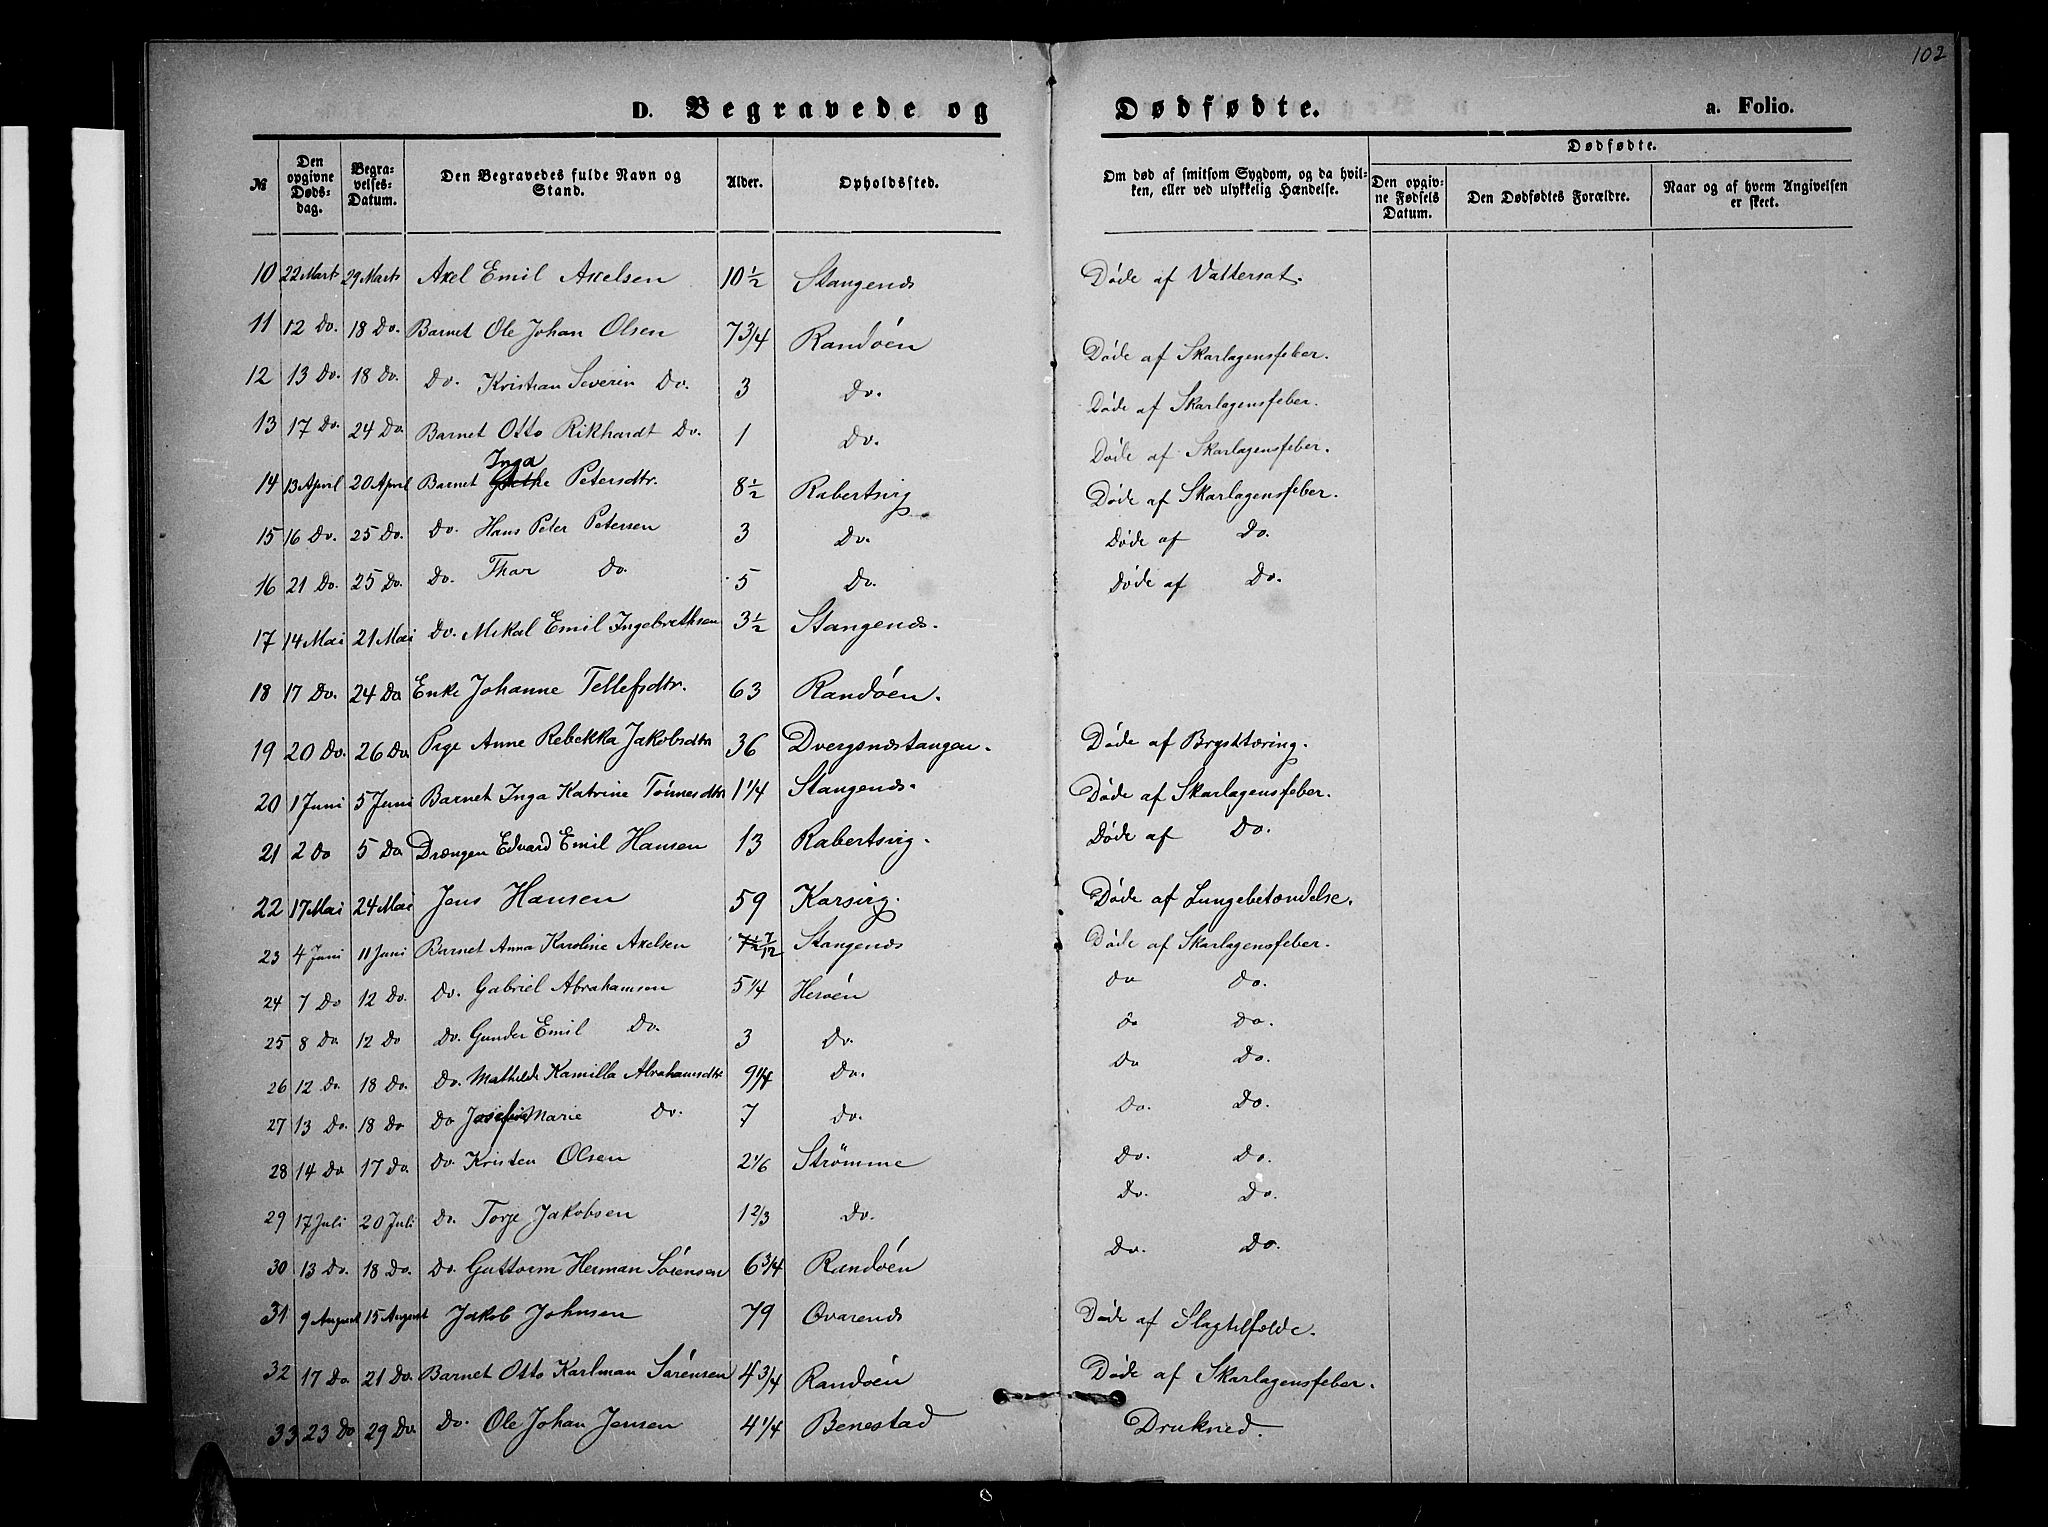 102
D. Begravede og Dødfødte. a. Folio.
№ Den opgivne Dødsdag. Begravelses-Datum. Den Begravedes fulde Navn og Stand. Alder. Opholdssted. Om død af smitsom Sygdom, og da hvilken, eller ved ulykkelig Hændelse. Dødfødte. Den opgivne Fødsels Datum. Den Dødfødtes Forældre. Naar og af hvem Angivelsen er skeet.
10 22 Marts 29 Marts Axel Emil Axelsen 10 1/2 Stangends Døde af Vattersot.
11 12 Do. 18 Do. Barnet Ole Johan Olsen 7 3/4 Randøen Døde af Skarlagensfeber.
12 13 Do. 18 Do. Do. Kristian Severin Do. 3 Do. Døde af Skarlagensfeber.
13 17 Do. 24 Do. Barnet Otto Rikhardt Do. 1 Do. Døde af Skarlagensfeber.
14 13 April 20 April Barnet Inga Petersdtr. 8 1/2 Rabertsvig Døde af Skarlagensfeber.
15 16 Do. 25 Do. Do. Hans Peter Petersen 3 Do. Døde af Do.
16 21 Do. 25 Do. Do. Thor Do. 5 Do. Døde af Do.
17 14 Mai 21 Mai Do. Mikal Emil Ingebrethsen 3 1/2 Stangends.
18 17 Do. 24 Do Enke Johanne Tellefsdtr. 63 Randøen.
19 20 Do. 26 Do. Pige Anne Rebekka Jakobsdtr 36 Dvergsnestangen. Døde af Brysttæring.
20 1 Juni 5 Juni Barnet Inga Katrine Tønnesdtr 1 1/4 Stangends. Døde af Skarlagensfeber.
21 2 Do 5 Do. Drængen Edvard Emil Hansen 13 Rabertsvig. Døde af Do.
22 17 Mai 24 Mai Jens Hansen 59 Korsvig. Døde af Lungebetændelse.
23 4 Juni 11 Juni Barnet Anna Karoline Axelsen 7/12 Stangends Døde af Skarlagensfeber.
24 7 Do 12 Do. Do. Gabriel Abrahamsen 5 1/4 Herøen Do Do.
25 8 Do. 12 Do Do. Gunder Emil Do. 3 Do. Do Do.
26 12 Do. 18 Do. Do. Mathilde Kamilla Abrahamsdtr 9 1/4 Do. Do Do.
27 13 Do. 18 Do Do Josefine Marie Do. 7 Do. Do. Do.
28 14 Do. 17 Do. Do. Kristen Olsen 2 1/6 Strømme Do. Do.
29 17 Juli 20 Juli Do. Torje Jakobsen 1 2/3 Do. Do. Do.
30 13 Do. 18 Do. Do. Guttorm Herman Sørensen 6 3/4 Randøen Do. Do.
31 9 August 15 August Jakob Johnsen 79 Ovarends Døde af Slagtilfælde.
32 17 Do 21 Do. Barnet Otto Karlman Sørensen 4 3/4 Randøen Døde af Skarlagensfeber.
33 23 Do 29 Do. Do. Ole Johan Jensen 4 1/4 Benestad Drukned.